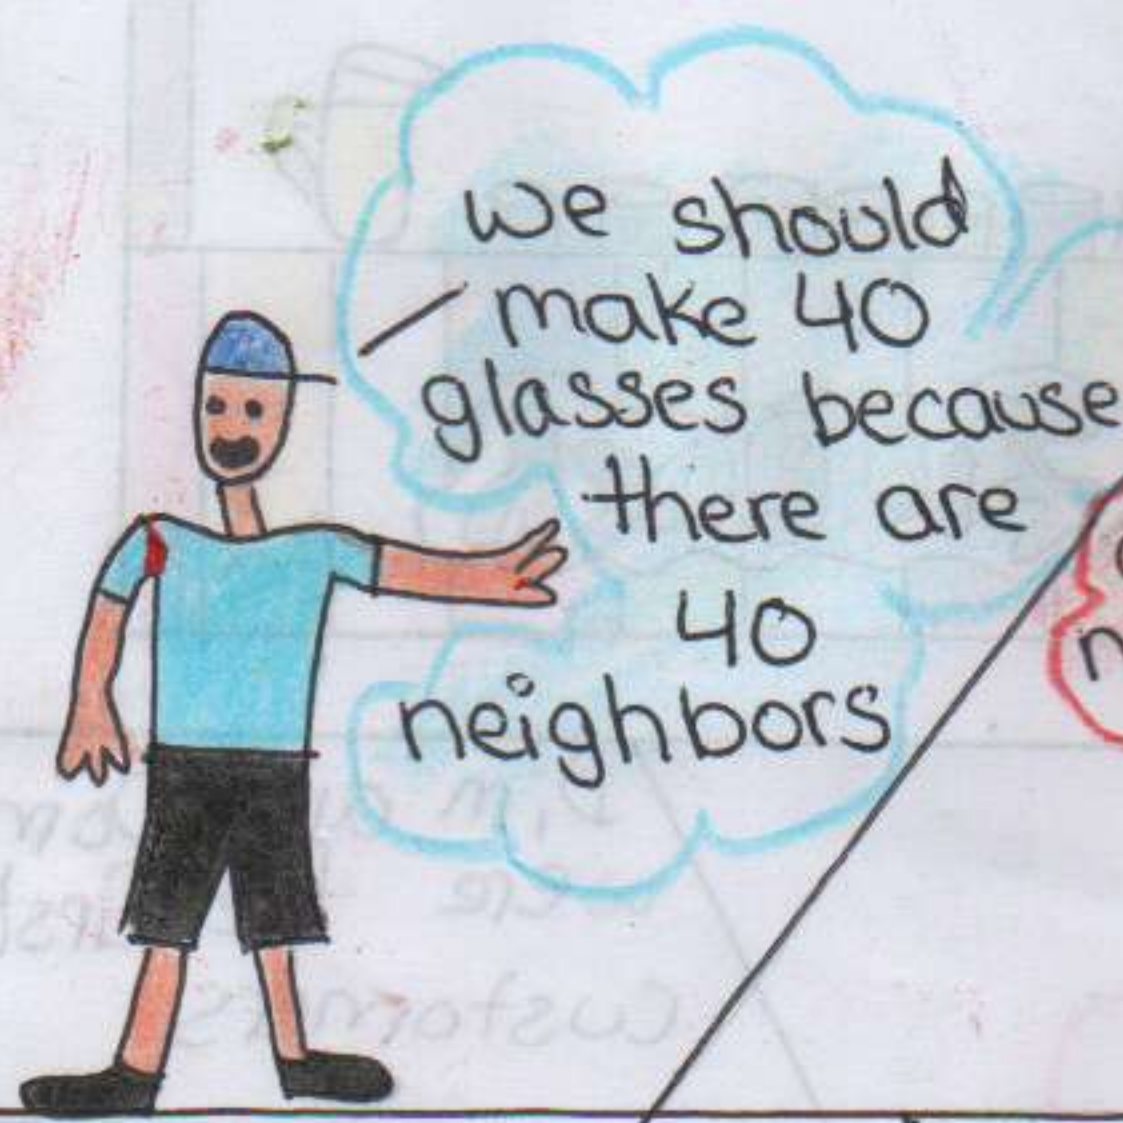 we should
make 40
glasses because
there are
40
neighbors
customers